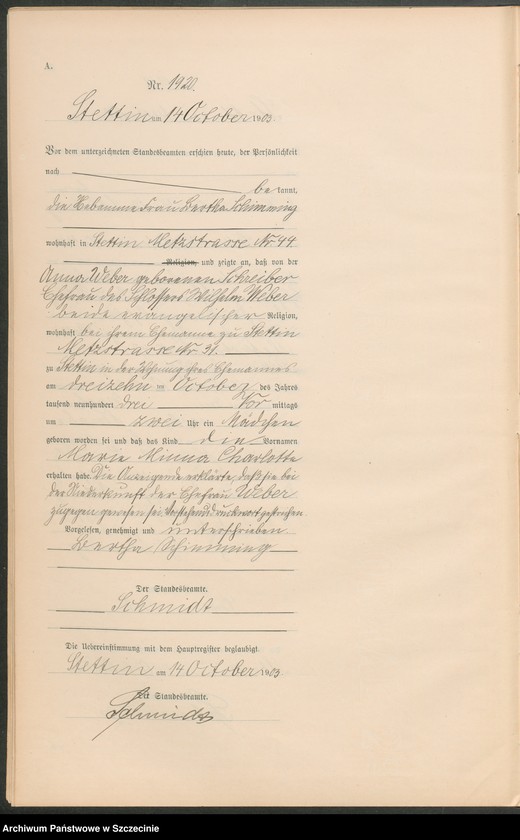 A.
Nr. 1920.
Stettin am 14 October 1903.
Vor dem unterzeichneten Standesbeamten erschien heute, der Persönlichkeit
nach
be kannt,
die Hebamme Frau Bertha Schimming
wohnhaft in Stettin Metzstrasse Nr 44
Religion, und zeigte an, daß von der
Anna Weber geborenen Schreiber
Ehefrau des Schlossers Wilhelm Weber
beide evangelischer Religion,
wohnhaft bei ihrem Ehemanne zu Stettin
Metzstrasse Nr 31.
zu Stettin in der Wohnung ihres Ehemannes
am dreizehn ten October des Jahres
tausend neunhundert drei Vor mittags
um zwei Uhr ein Mädchen
geboren worden sei und daß das Kind die Vornamen
Marie Minna Charlotte
erhalten habe. Die Anzeigende erklärte, daß sie bei
der Niederkunft der Ehefrau Weber
zugegen gewesen sei. Vorstehend Druckwort gestrichen.
Vorgelesen, genehmigt und unterschrieben.
Bertha Schimming
Der Standesbeamte.
Schmidt
Die Uebereinstimmung mit dem Hauptregister beglaubigt.
Stettin am 14 October 1903
Der Standesbeamte.
Schmidt
Archiwum Państwowe w Szczecinie